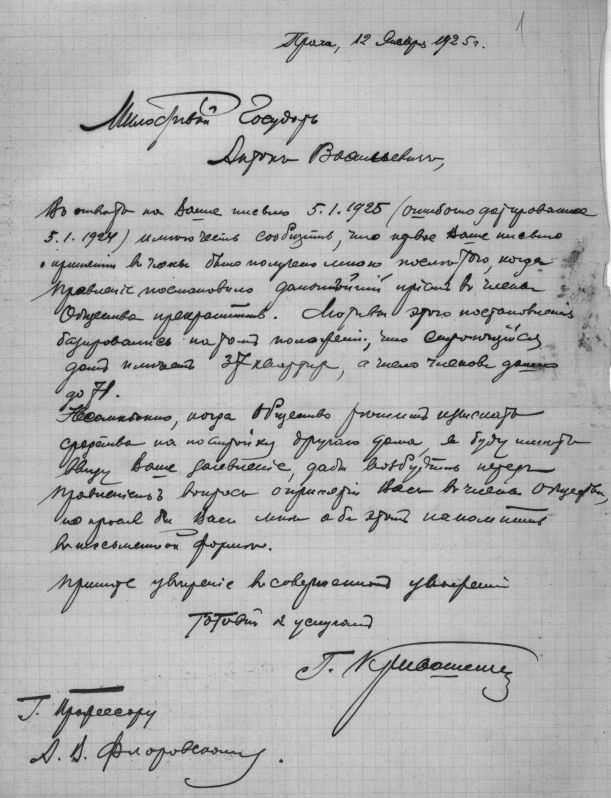 1
Прага, 12 Января 1925 г.
Милостивый Государь
Антон Васильевич,
В ответ на Ваше письмо 5.1.1925 (ошибочно датированное
5.1.1924) имею честь сообщить, что первое Ваше письмо
принятии в члены было получено мною после того, когда
правление постановило дальнейший прием в члены
Общества прекратить. Мотивы этого постановления
базировались на том положении, что строющийся
дом имеет 37 квартир, а число членов дошло
до 71.
Несомненно, когда Общество решит изыскать
средства на постройку другого дома, я буду иметь
ввиду Ваше заявление, дабы возбудить перед
правлением вопрос о принятии Вас в члена Общества,
но просил бы Вас мне об этом напомнить
в письменной форме.
Примите уверение в совершенном уважении
готовый к услугам
Г. Профессору
А. В. Флоровскому.